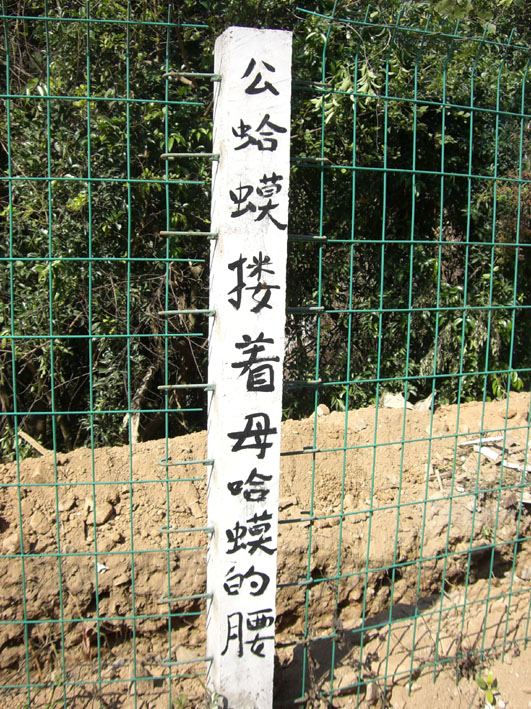 公蛤蟆搂着母哈蟆的腰